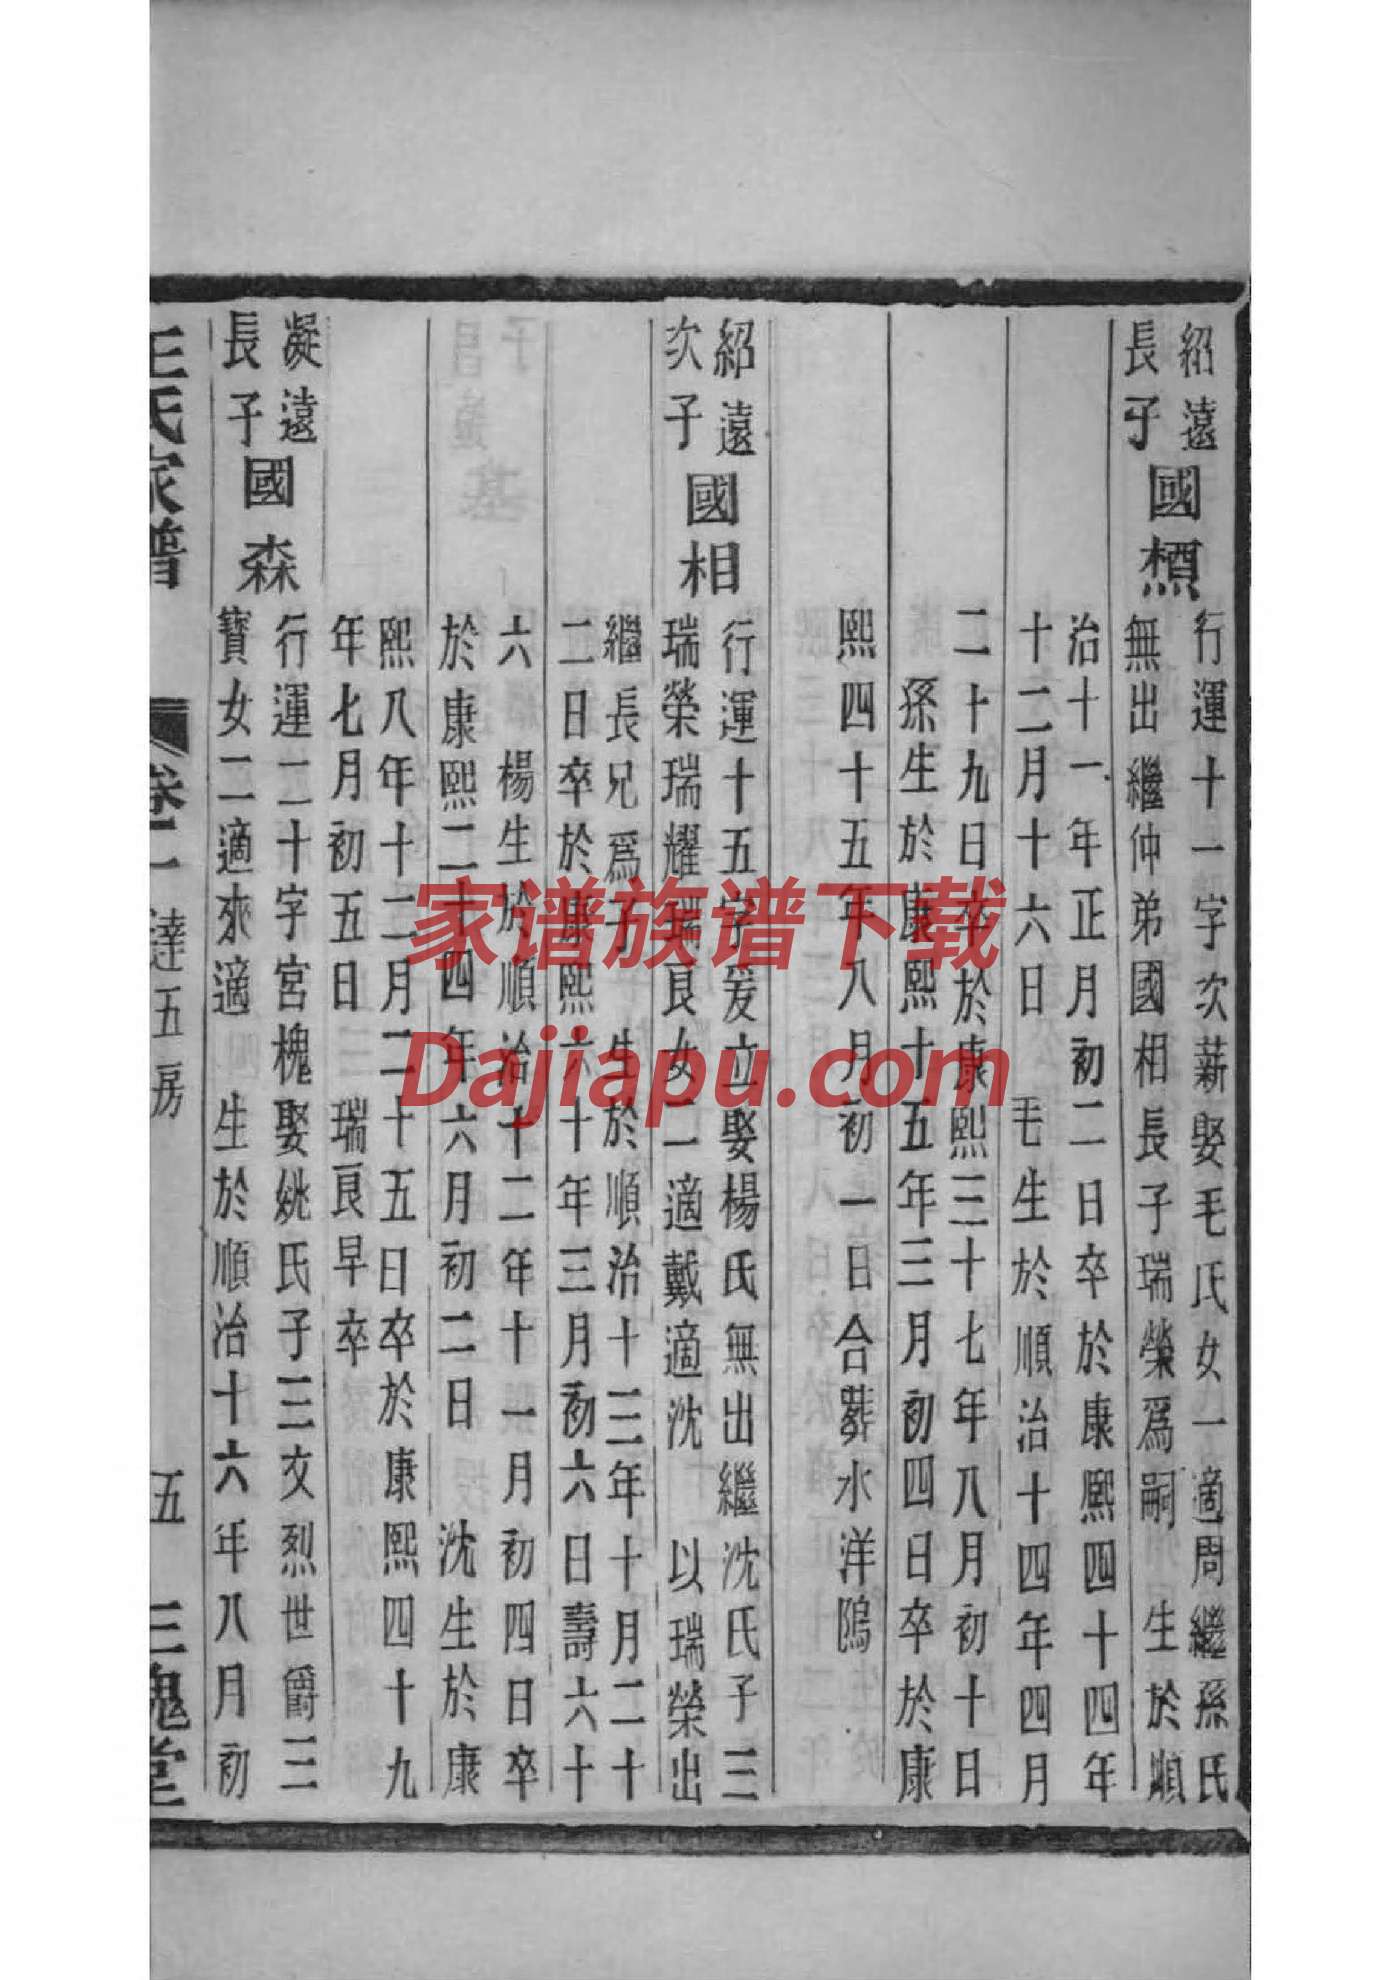 紹遠
長子
國槱
行運十一字次薪娶毛氏女一適周繼孫氏
無出繼仲弟國相長子瑞榮爲嗣 生於順
治十一年正月初二日卒於康熙四十四年
十二月十六日 毛生於順治十四年四月
二十九日 卒於康熙三十七年八月初十日
孫生於康熙十五年三月初四日卒於康
熙四十五年八月初一日合葬水洋隖
紹遠
次子
國相
行運十五字爰立娶楊氏無出繼沈氏子三
瑞榮瑞耀瑞良女二適戴適沈 以瑞榮出
繼長兄爲子 生於順治十三年十月二十
二日卒於康熙六十年三月初六日壽六十
六 楊生於順治十二年十一月初四日卒
於康熙二十四年六月初二日 沈生於康
熙八年十二月二十五日卒於康熙四十九
年七月初五日 瑞良早卒
凝遠
長子
國森
行運二十字宮槐娶姚氏子三文烈世爵三
寶女二適來適 生於順治十六年八月初
王氏家譜
卷二
達五房
五
三槐堂
家谱族谱下载
Dajiapu.com